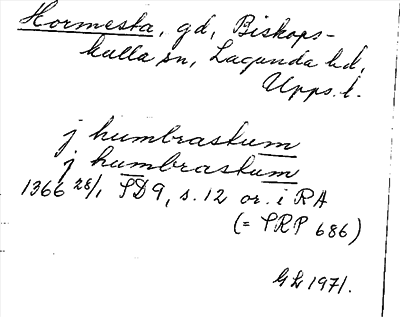 Hormesta, gd, Biskops-
kulla sn, Lagunda hd,
Upps. l.
j humbrastum
j humbrastum
1366 28/1 SD 9, s. 12 or. i RA
(= SRP 686)
GL 1971.